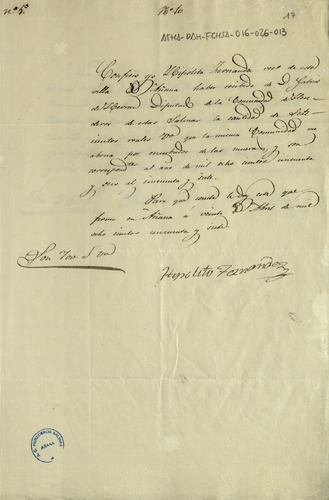 nº 5º Nº 6 17
ATHA-DAH-FCHSA-016-026-013
Confieso yo Hipolito Fernandez vecº de esta
villa de Añana haber recibido de D.
de Herran Diputado de la Comunidad de
deros de estas Salinas la cantidad de
cientos reales Von que la misma Comunidad me
abona por de las mueras, y son
correspondtes al año de mil ocho cientos cincuenta
y seis al cincuenta y siete.
Para que conste doy este que
firmo en Añana a veinte de Abril de mil
ocho cientos cincuenta y siete
Son 700 rs von
Hipolito Fernandez
AÑANA